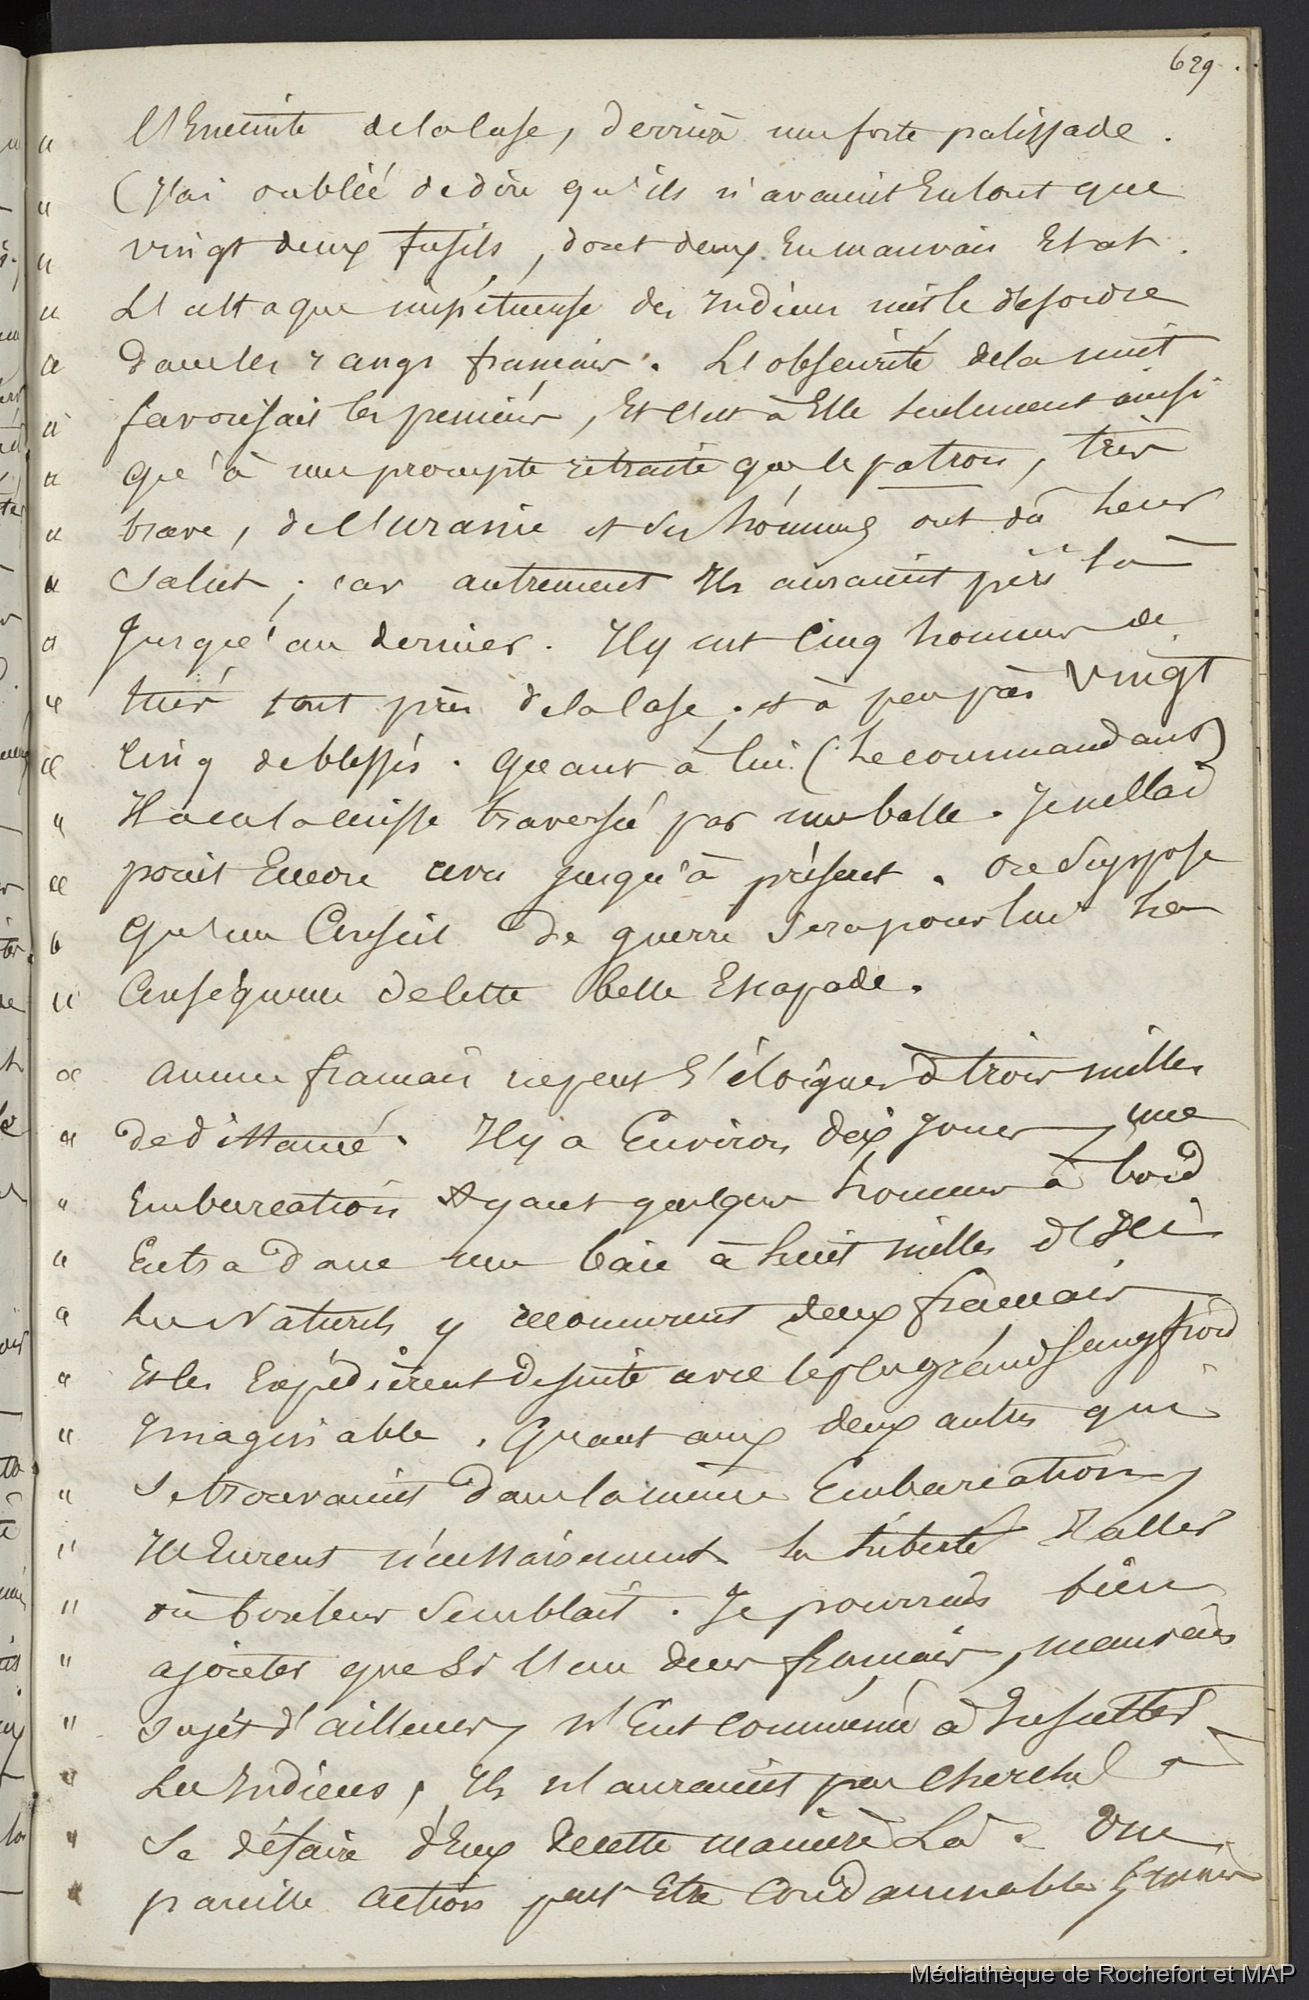 629.
" l'Enceinte de la Case, derrière une forte palissade.
" (J'ai oublié de dire qu'ils n'avaient En tout que
" vingt deux fusils, dont deux En mauvais Etat.
" L'attaque impétueuse des Indiens mit le désordre
" dans les rangs français. L'obscurité de la nuit
" favorisait les premiers, Et c'est à Elle seulement ainsi
" qu'à une prompte retraite que le patron, très
" brave, de l'uranie et ses hommes ont dû leur
" salut ; car autrement Ils auraient péri là
" Jusqu'au dernier. Il y eut Cinq hommes de
" tués tout près de la Case, et à peu près Vingt
" Cinq de blessés. Quant à lui (le commandant)
" Il a eu la cuisse traversée par une balle. Je ne l'ai
" point Encore vu jusqu'à présent. On Suppose
" Qu'un Conseil De guerre Sera pour lui la
" Conséquence de Cette belle Escapade.
" aucun français ne peut s'éloigner à trois milles
" de d'ittané. Il y a Environ dix Jours, une
" Embarcation Ayant quelques hommes à bord
" Entra dans une baie à huit milles d'ici
" Les Naturels y reconnurent deux français
" Et les Expédièrent de suite avec le plus grand Sang froid
" Imaginable. Quant aux deux autres qui
" Se trouvaient dans la même Embarcation,
" Ils Eurent nécessairement la liberté d'aller
" où bon leur Semblait. Je pourrais bien
" ajouter que Si l'un des français, mauvais
" Sujet d'ailleurs, n'Eut commencé à Insulter
" Les Indiens, Ils n'auraient pas Cherché à
" Se défaire d'Eux de cette manière Là. Une
" pareille action peut Etre Condamnable
Médiathèque de Rochefort et MAP